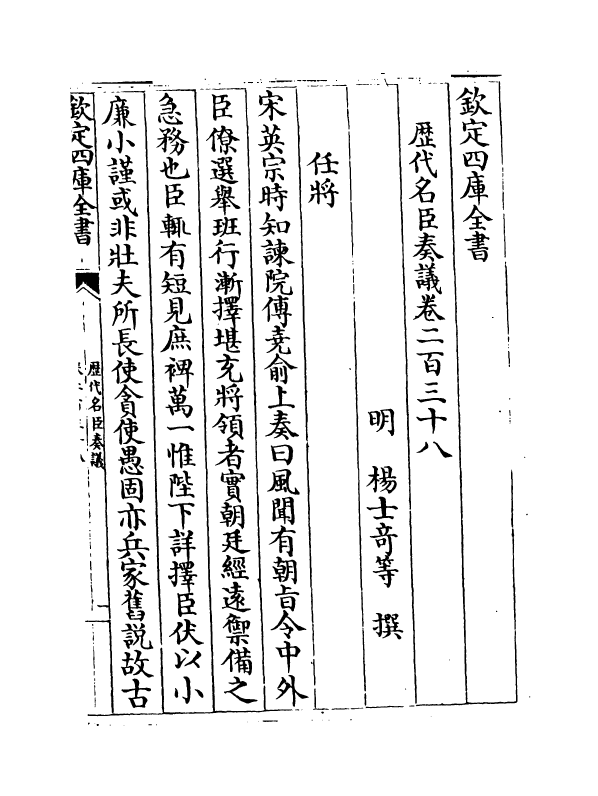 欽定四庫全書
歴代名臣奏議卷二百三十八
明 楊士竒等 撰
任將
宋英宗時知諫院傅堯俞上奏曰風聞有朝旨令中外
臣僚選舉班行漸擇堪充將領者實朝廷經遠禦備之
急務也臣輒有短見庶裨萬一惟陛下詳擇臣伏以小
廉小謹或非壯夫所長使貪使愚固亦兵家舊説故古
欽定四庫全書
歴代名臣奏議
一